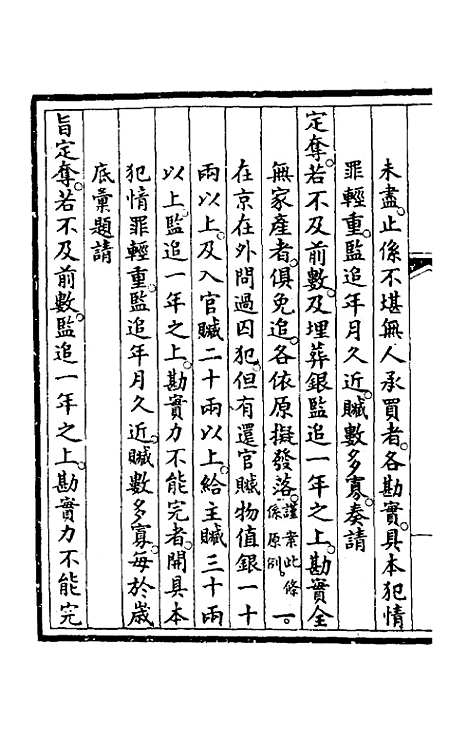 未盡。止係不堪無人承買者。各勘實具本犯情
罪輕重。監追年月久近。贓數多寡。奏請
定奪。若不及前數。及埋葬銀監追一年之上。勘實全
無家產者。俱免追。各依原擬發落。謹案此條係原例。一。
在京在外問過囚犯。但有還官贓物值銀一十
兩以上。及入官贓二十兩以上。給主贓三十兩
以上。監追一年之上。勘實力不能完者。開具本
犯情罪輕重。監追年月久近。贓數多寡。每於歲
底彙題請
旨定奪。若不及前數。監追一年之上。勘實力不能完